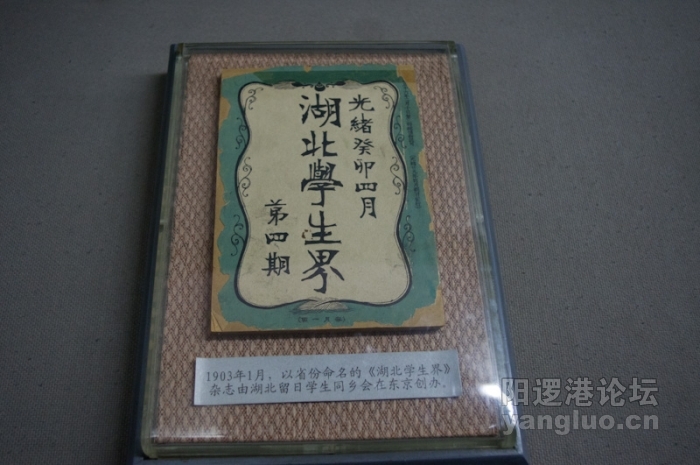 光緒癸卯四月
湖北學生界
第四期
1903年1月，以省份命名的《湖北学生界》
杂志由湖北留日学生同乡会在东京创办。
阳逻港论坛
yangluo.cn